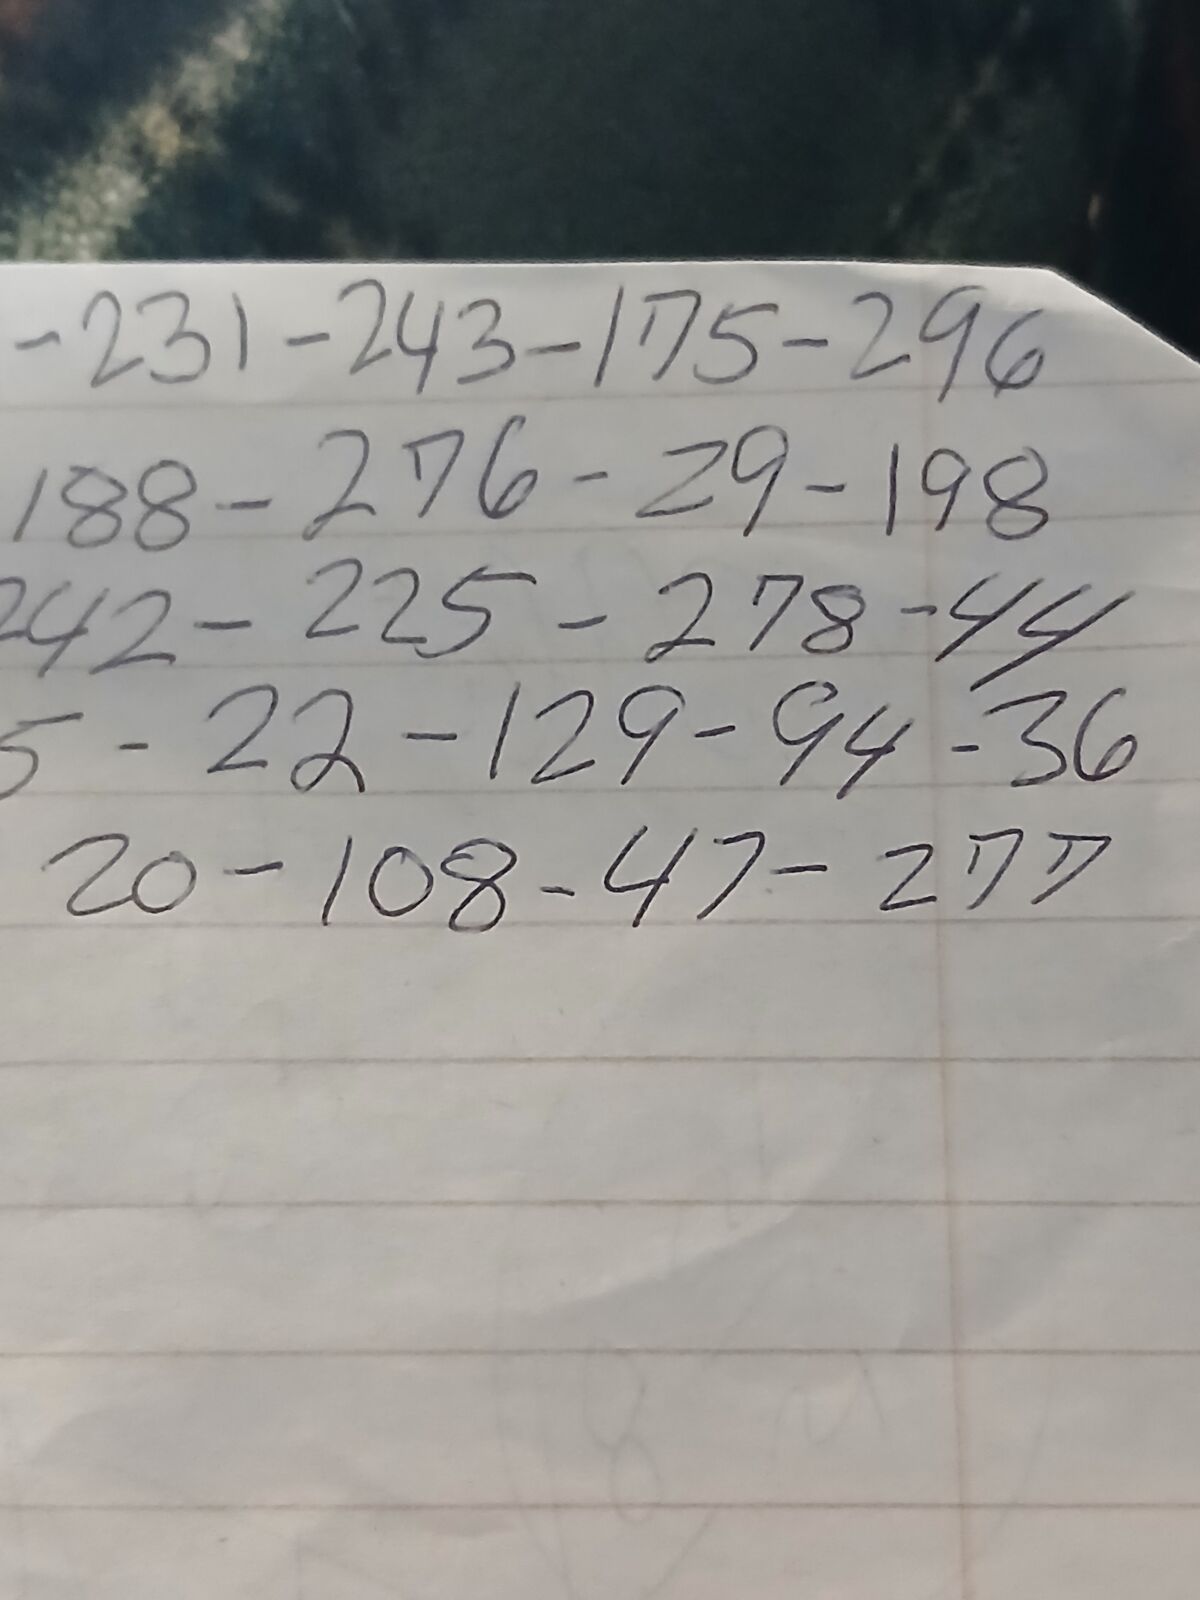 -231-243-175-296
188-276-29-198
242-225-278-44
5-22-129-94-36
20-108-47-277